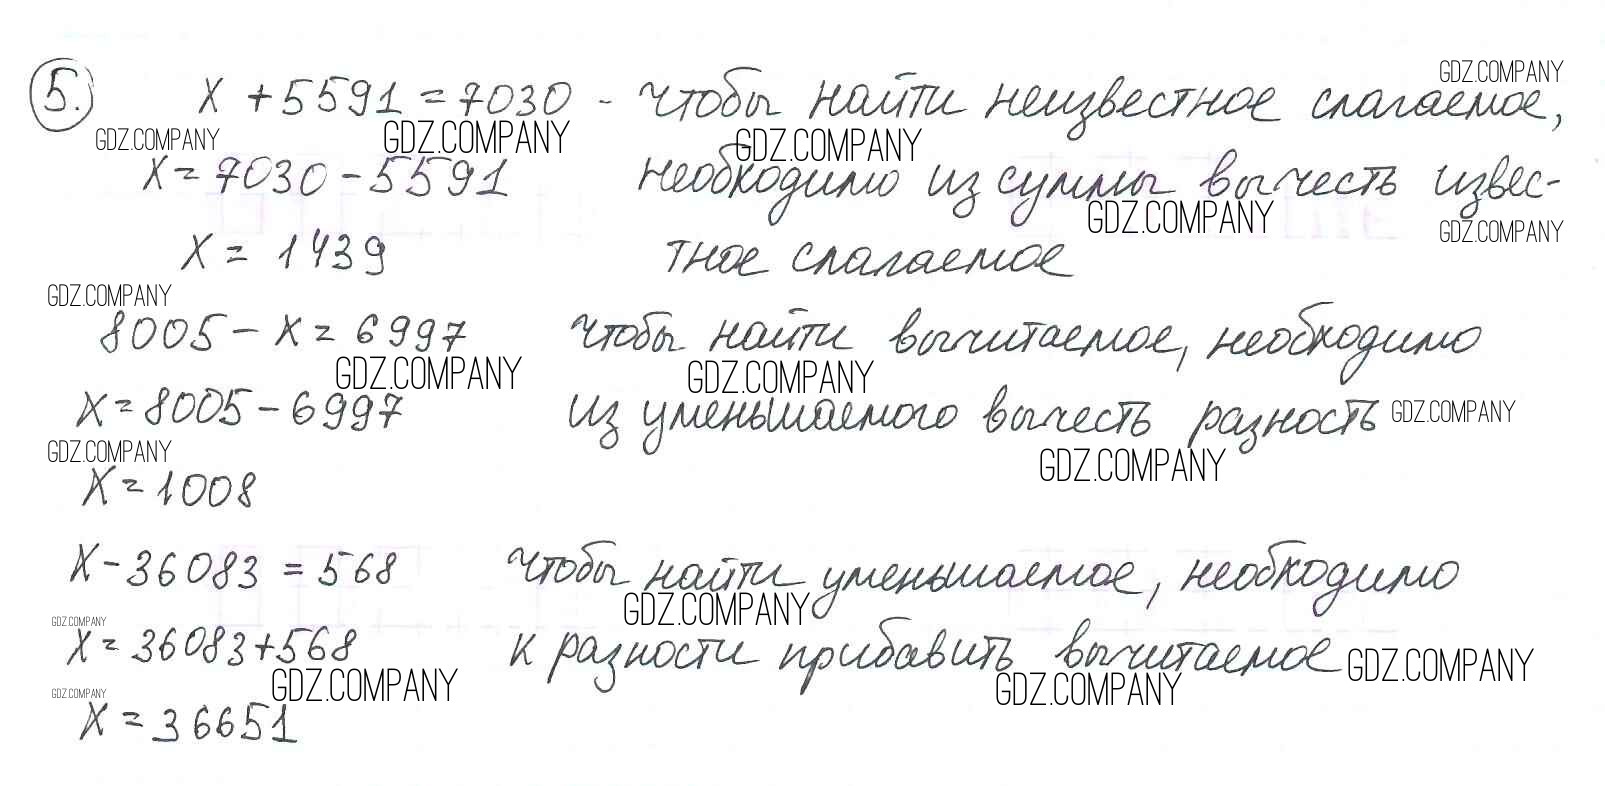 5. x + 5591 = 7030 - чтобы найти неизвестное слагаемое,
GDZ.COMPANY
GDZ.COMPANY GDZ.COMPANY GDZ.COMPANY
x = 7030 - 5591 необходимо из суммы вычесть извес-
GDZ.COMPANY GDZ.COMPANY
x = 1439 тное слагаемое
GDZ.COMPANY
8005 - x = 6997 чтобы найти вычитаемое, необходимо
GDZ.COMPANY GDZ.COMPANY
x = 8005 - 6997 из уменьшаемого вычесть разность GDZ.COMPANY
GDZ.COMPANY GDZ.COMPANY
x = 1008
x - 36083 = 568 чтобы найти уменьшаемое, необходимо
GDZ.COMPANY GDZ.COMPANY
x = 36083 + 568 к разности прибавить вычитаемое GDZ.COMPANY
GDZ.COMPANY GDZ.COMPANY GDZ.COMPANY
x = 36651